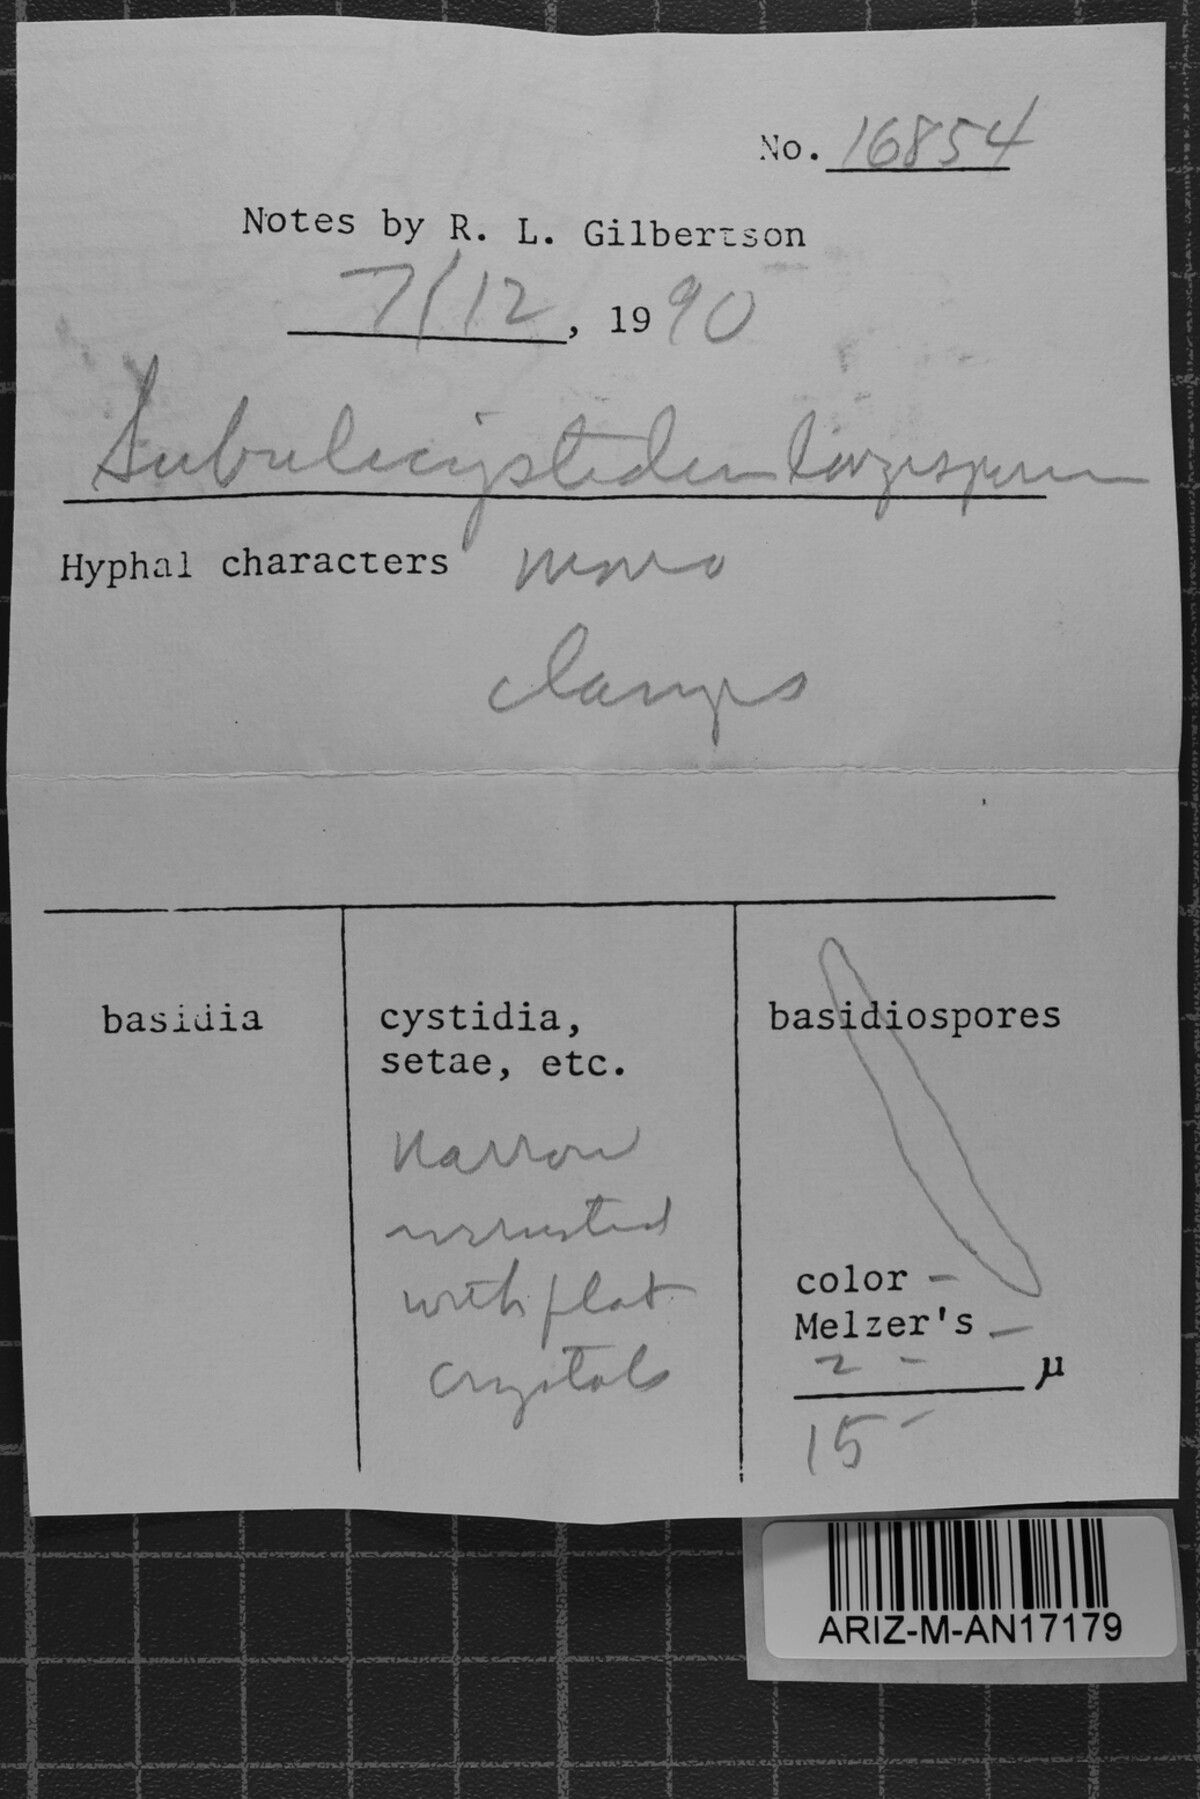 No. 16854
Notes by R. L. Gilbertson
7/12, 1990
Subulicystidium longisporum
Hyphal characters mono
clamps
basidia
cystidia,
setae, etc.
narrow
incrusted
with flat
crystals
basidiospores
color -
Melzer's -
2 - µ
15 -
ARIZ-M-AN17179